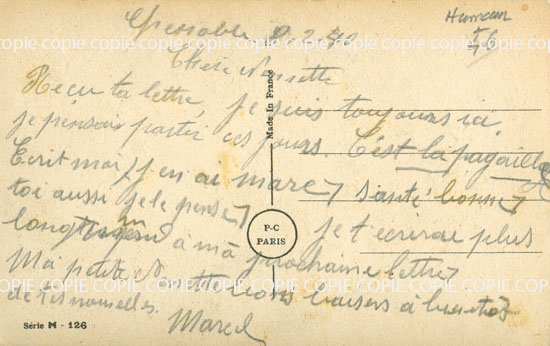 Humeau
I/6
Grenoble 8.2.40
Chère Nonette
Reçu ta lettre, je suis toujours ici,
je pensais partir ces jours. C'est la pagaille
Ecrit moi, j'en ai marre, santé bonne,
toi aussi je le pense, je t'écrirai plus
longuement à ma prochaine lettre,
Ma petite bons baisers à bientôt
de tes nouvelles.
Marcel
Made In France
P-C
PARIS
Série M - 126
COPIE COPIE COPIE COPIE COPIE COPIE COPIE COPIE